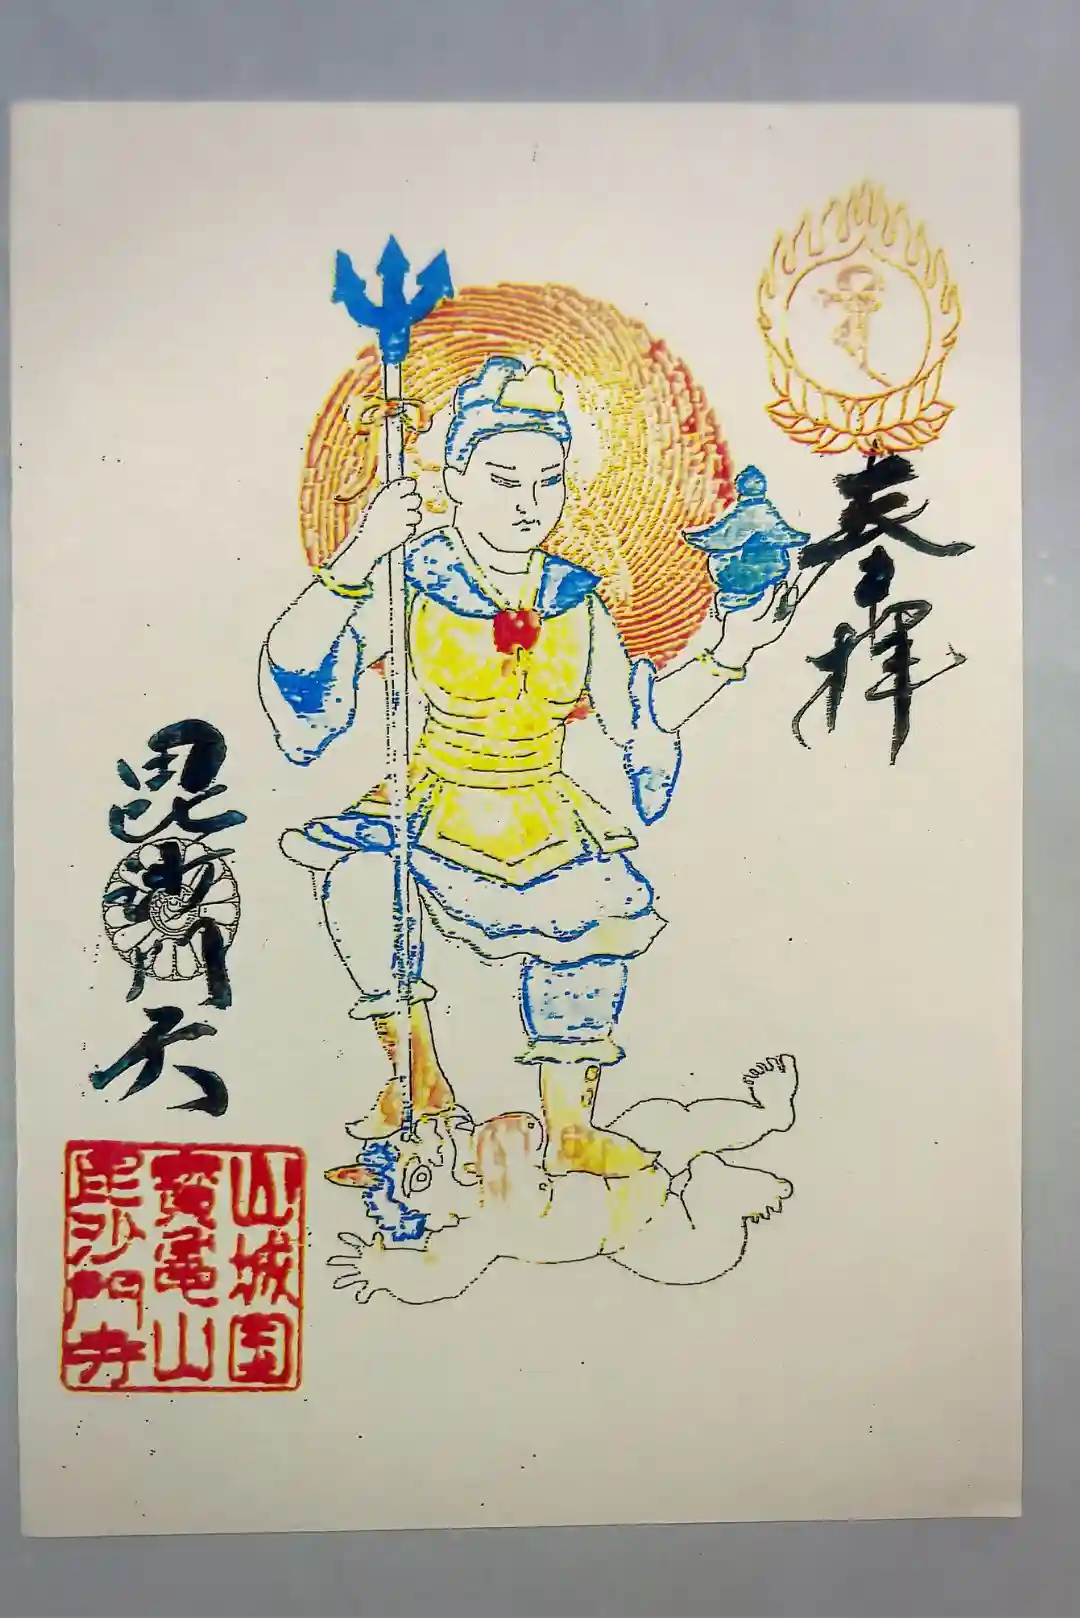 奉拝
毘沙門天
山城国
寶亀山
毘沙門寺